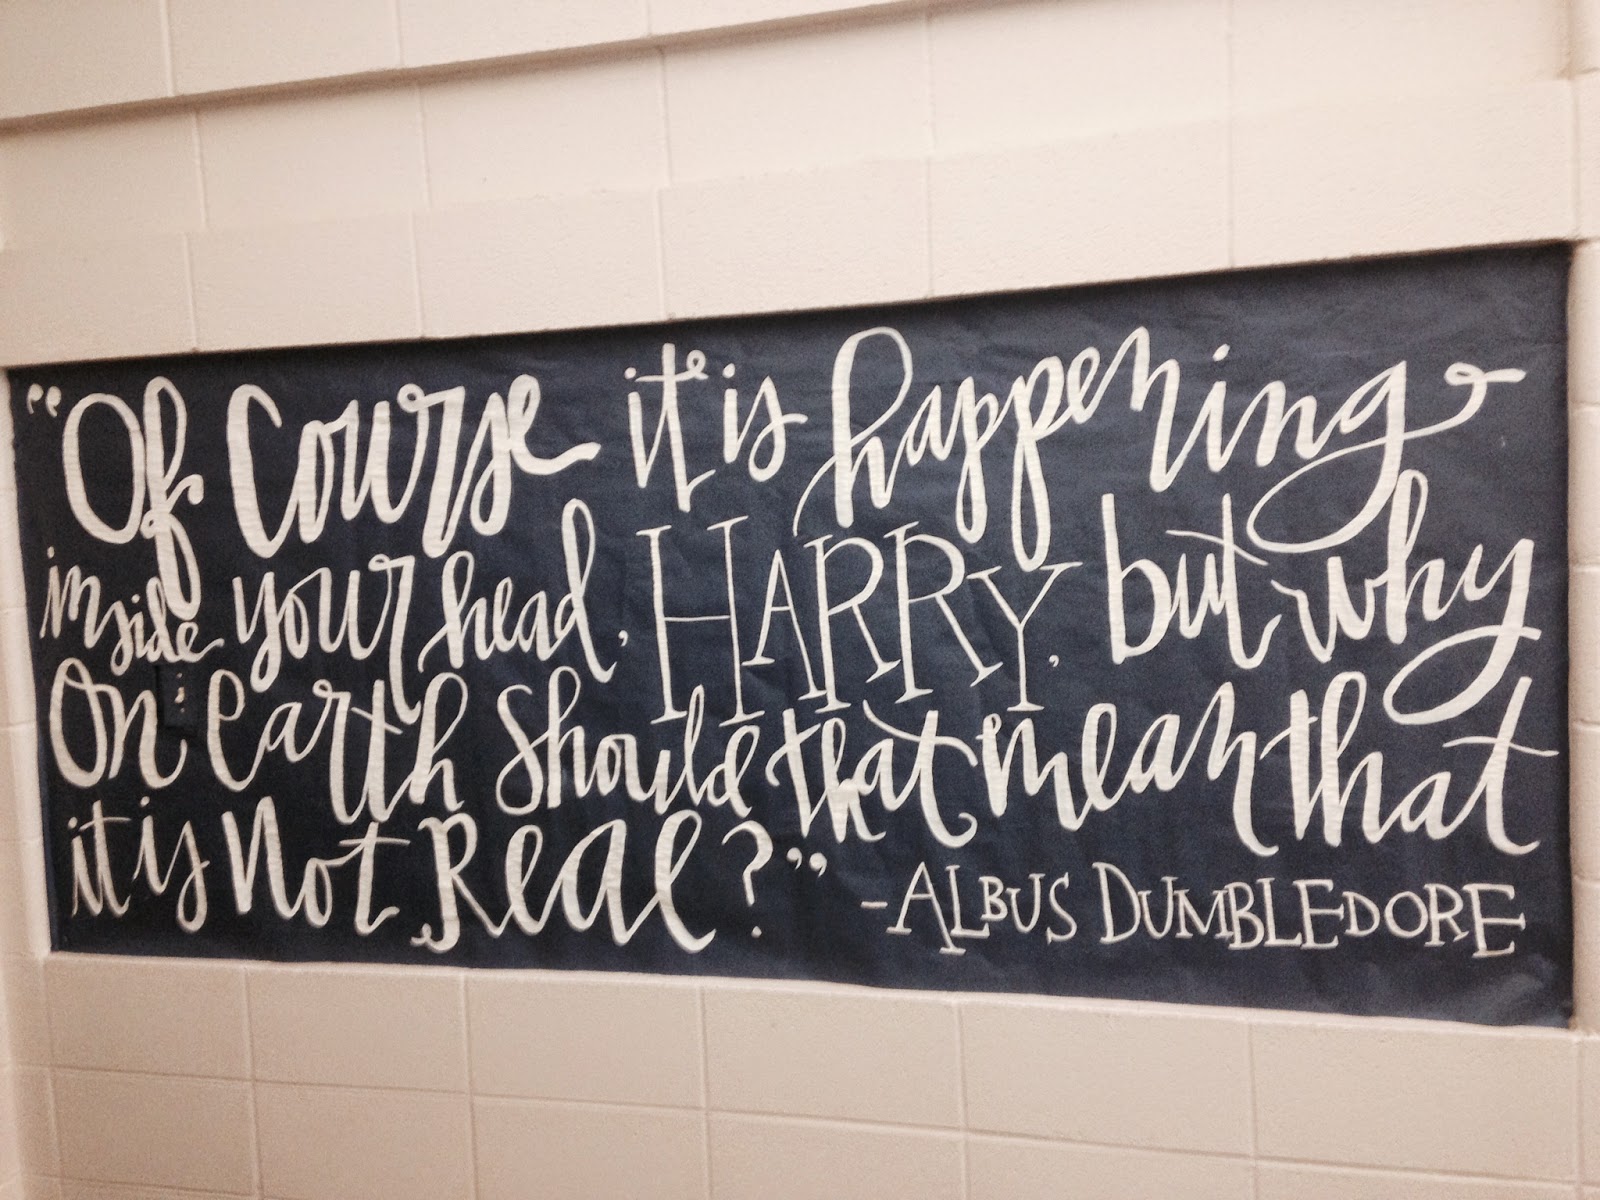 “Of Course it is happening
inside your head, HARRY, but why
On earth should that mean that
it is Not Real?” -ALBUS DUMBLEDORE